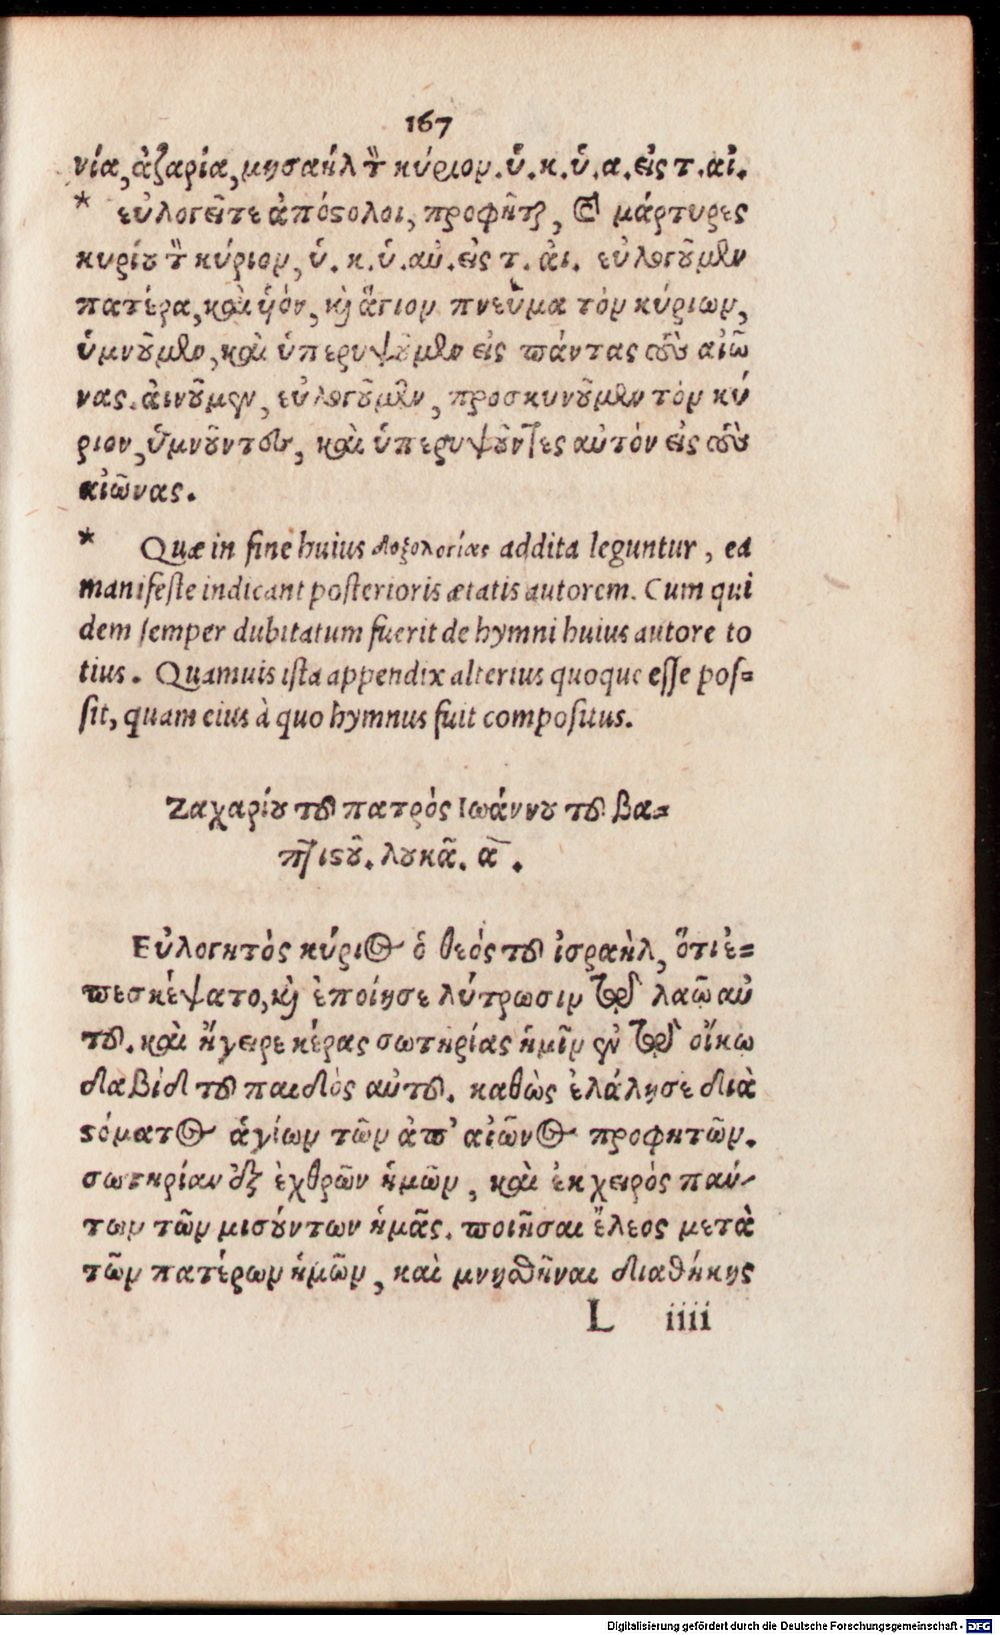 167
νία, ἀζαρία, μησαήλ τ̀ κύριον. ὑ. κ. ὑ. α. εἰς τ. αἰ.
* εὐλογεῖτε ἀπόςολοι, προφῆται, καὶ μάρτυρες
κυρίου τ̀ κύριον, ὑ. κ. ὑ. αὐ. εἰς τ. ἀι. εὐλογοῦμεν
πατέρα, καὶ ὑιόν, καὶ ἅγιον πνεῦμα τὸν κύριων,
ὑμνοῦμεν, καὶ ὑπερυψοῦμεν εἰς πάντας τοὺς αἰῶ
νας. ἀινοῦμεν, εὐλογοῦμεν, προσκυνοῦμεν τὸν κύ
ριον, ὑμνοῦντες, καὶ ὑπερυψοῦντες αὐτόν εἰς τοὺς
αἰῶνας.
* Quæ in fine huius δοξολογίας addita leguntur, ea
manifeste indicant posterioris ætatis autorem. Cum qui
dem semper dubitatum fuerit de hymni huius autore to
tius. Quamuis ista appendix alterius quoque esse pos=
sit, quam eius à quo hymnus fuit compositus.
Ζαχαρίου τοῦ πατρὸς Ιωάννου τοῦ βα=
πτιςοῦ. λουκᾶ. α.
Εὐλογητὸς κύριος ὁ θεός τοῦ ἰσραὴλ, ὅτι ἐ=
πεσκέψατο, καὶ ἐποίησε λύτρωσιν τῷ λαῷ αὐ
τοῦ. καὶ ἤγειρε κέρας σωτηρίας ἡμῖν ἐν τῷ οἴκω
δαβίδ τοῦ παιδὸς αὐτοῦ. καθὼς ἐλάλησε διὰ
ςόματος ἁγίων τῶν ἀπ’ αἰῶνος προφητῶν.
σωτηρίαν ἐξ ἐχθρῶν ἡμῶν, καὶ ἐκ χειρὸς πάν-
των τῶν μισούντων ἡμᾶς. ποιῆσαι ἔλεος μετὰ
τῶν πατέρων ἡμῶν, καὶ μνησθῆναι διαθήκης
L iiii
Digitalisierung gefördert durch die Deutsche Forschungsgemeinschaft - DFG